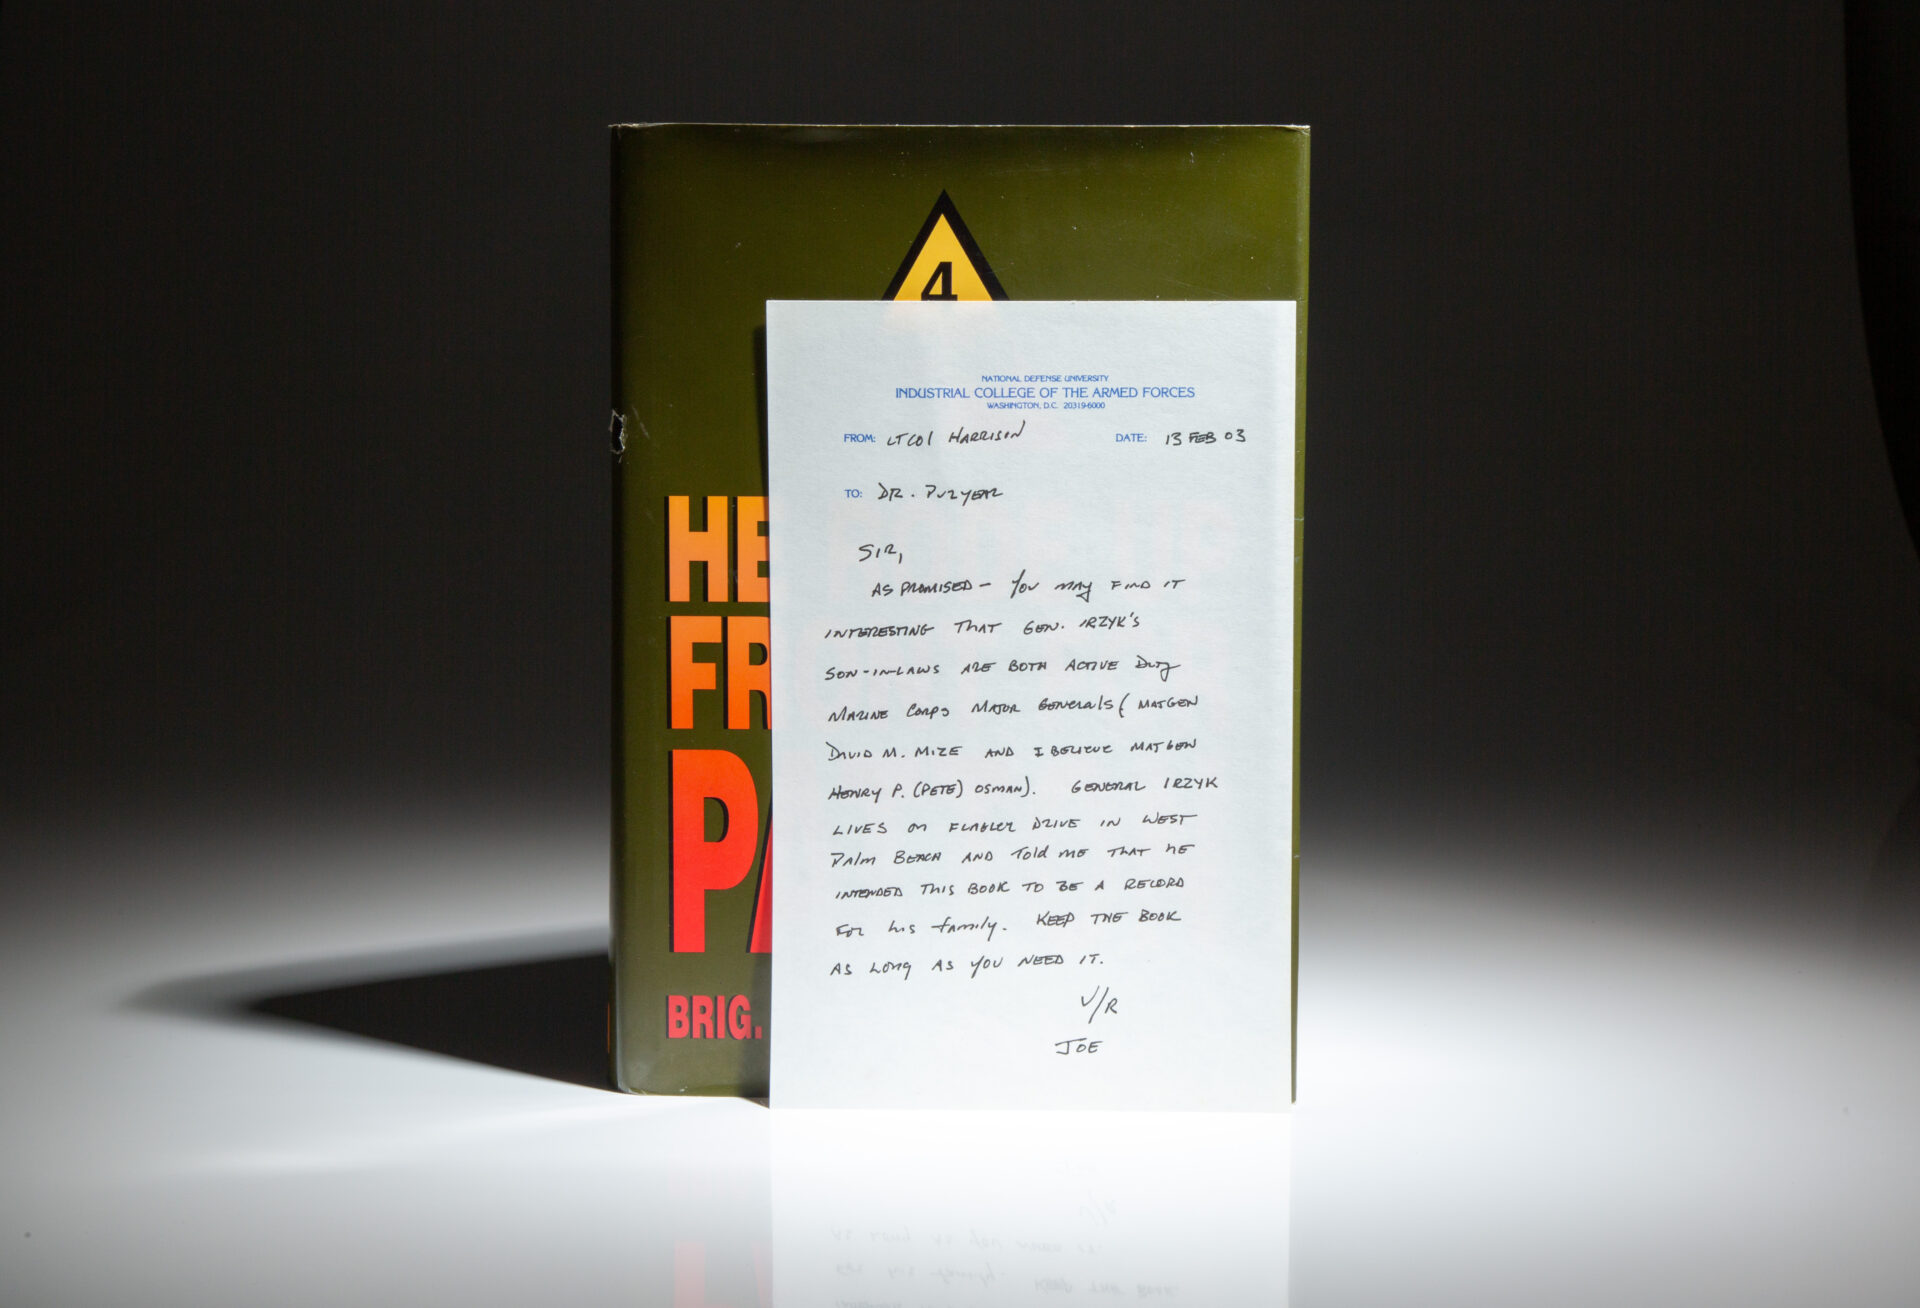 4
HE
FR
PA
BRIG.
NATIONAL DEFENSE UNIVERSITY
INDUSTRIAL COLLEGE OF THE ARMED FORCES
WASHINGTON, D.C. 20319-6000
FROM: LTCOl HARRISON DATE: 13 FEB 03
TO: DR. PURYEAR
SIR,
AS PROMISED – YOU MAY FIND IT
INTERESTING THAT GEN. IRZYK'S
SON-IN-LAWS ARE BOTH ACTIVE DUTY
MARINE CORPS MAJOR GENERALS (MAJGEN
DAVID M. MIZE AND I BELIEVE MAJGEN
HENRY P. (PETE) OSMAN). GENERAL IRZYK
LIVES ON FLAGLER DRIVE IN WEST
PALM BEACH AND TOLD ME THAT HE
INTENDED THIS BOOK TO BE A RECORD
FOR his family. KEEP THE BOOK
AS LONG AS YOU NEED IT.
V/R
JOE